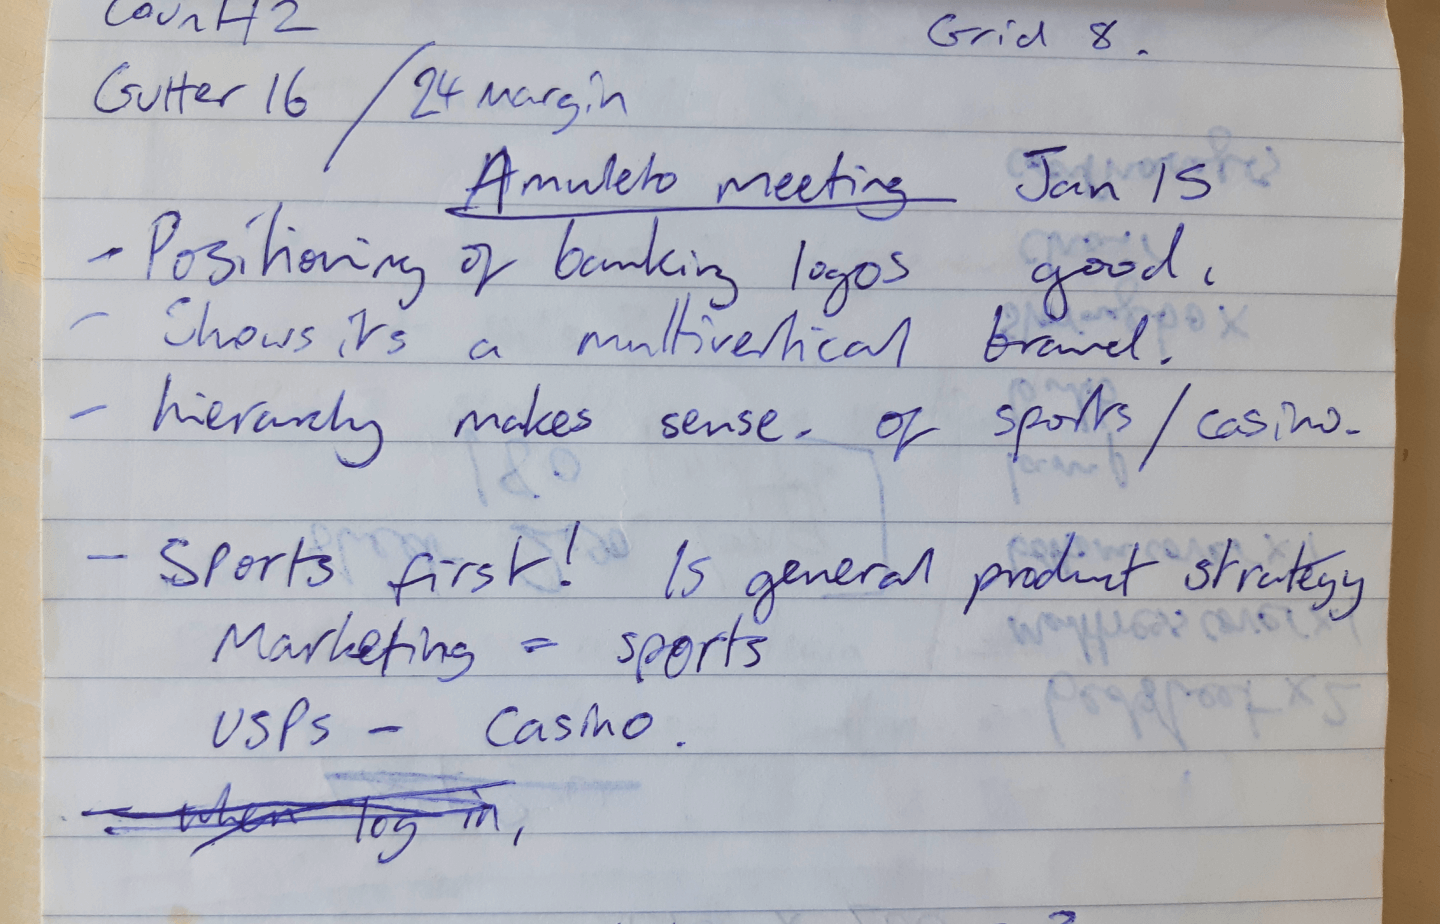 Grid 8.
Gutter 16 / 24 Margin
Amuleto meeting Jan 15
- Positioning of banking logos good.
- Shows its a multivertical brand.
- hierarchy makes sense. of sports / casino.
- Sports first! Is general product strategy
Marketing = sports
USPs - Casino.
when log in,